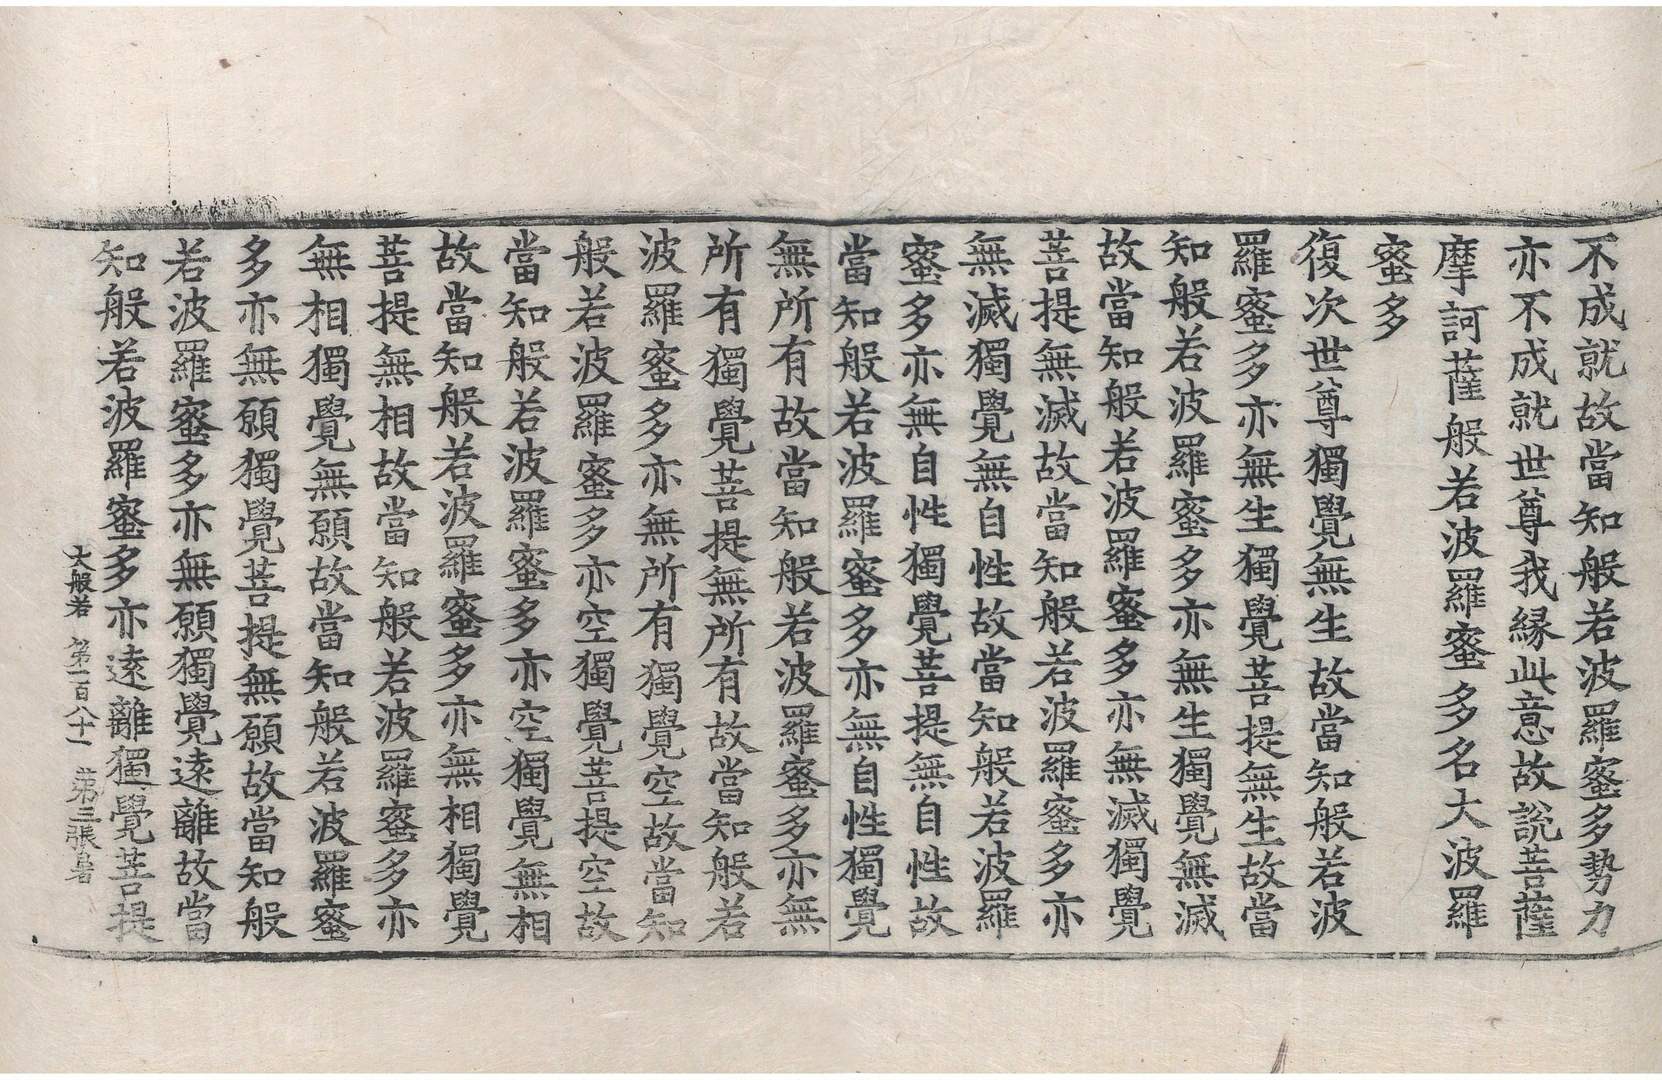 不成就故當知般若波羅蜜多勢力
亦不成就世尊我緣此意故說菩薩
摩訶薩般若波羅蜜多名大波羅
蜜多
復次世尊獨覺無生故當知般若波
羅蜜多亦無生獨覺菩提無生故當
知般若波羅蜜多亦無生獨覺無滅
故當知般若波羅蜜多亦無滅獨覺
菩提無滅故當知般若波羅蜜多亦
無滅獨覺無自性故當知般若波羅
蜜多亦無自性獨覺菩提無自性故
當知般若波羅蜜多亦無自性獨覺
無所有故當知般若波羅蜜多亦無
所有獨覺菩提無所有故當知般若
波羅蜜多亦無所有獨覺空故當知
般若波羅蜜多亦空獨覺菩提空故
當知般若波羅蜜多亦空獨覺無相
故當知般若波羅蜜多亦無相獨覺
菩提無相故當知般若波羅蜜多亦
無相獨覺無願故當知般若波羅蜜
多亦無願獨覺菩提無願故當知般
若波羅蜜多亦無願獨覺遠離故當
知般若波羅蜜多亦遠離獨覺菩提
大般若 第一百八十一 第三張